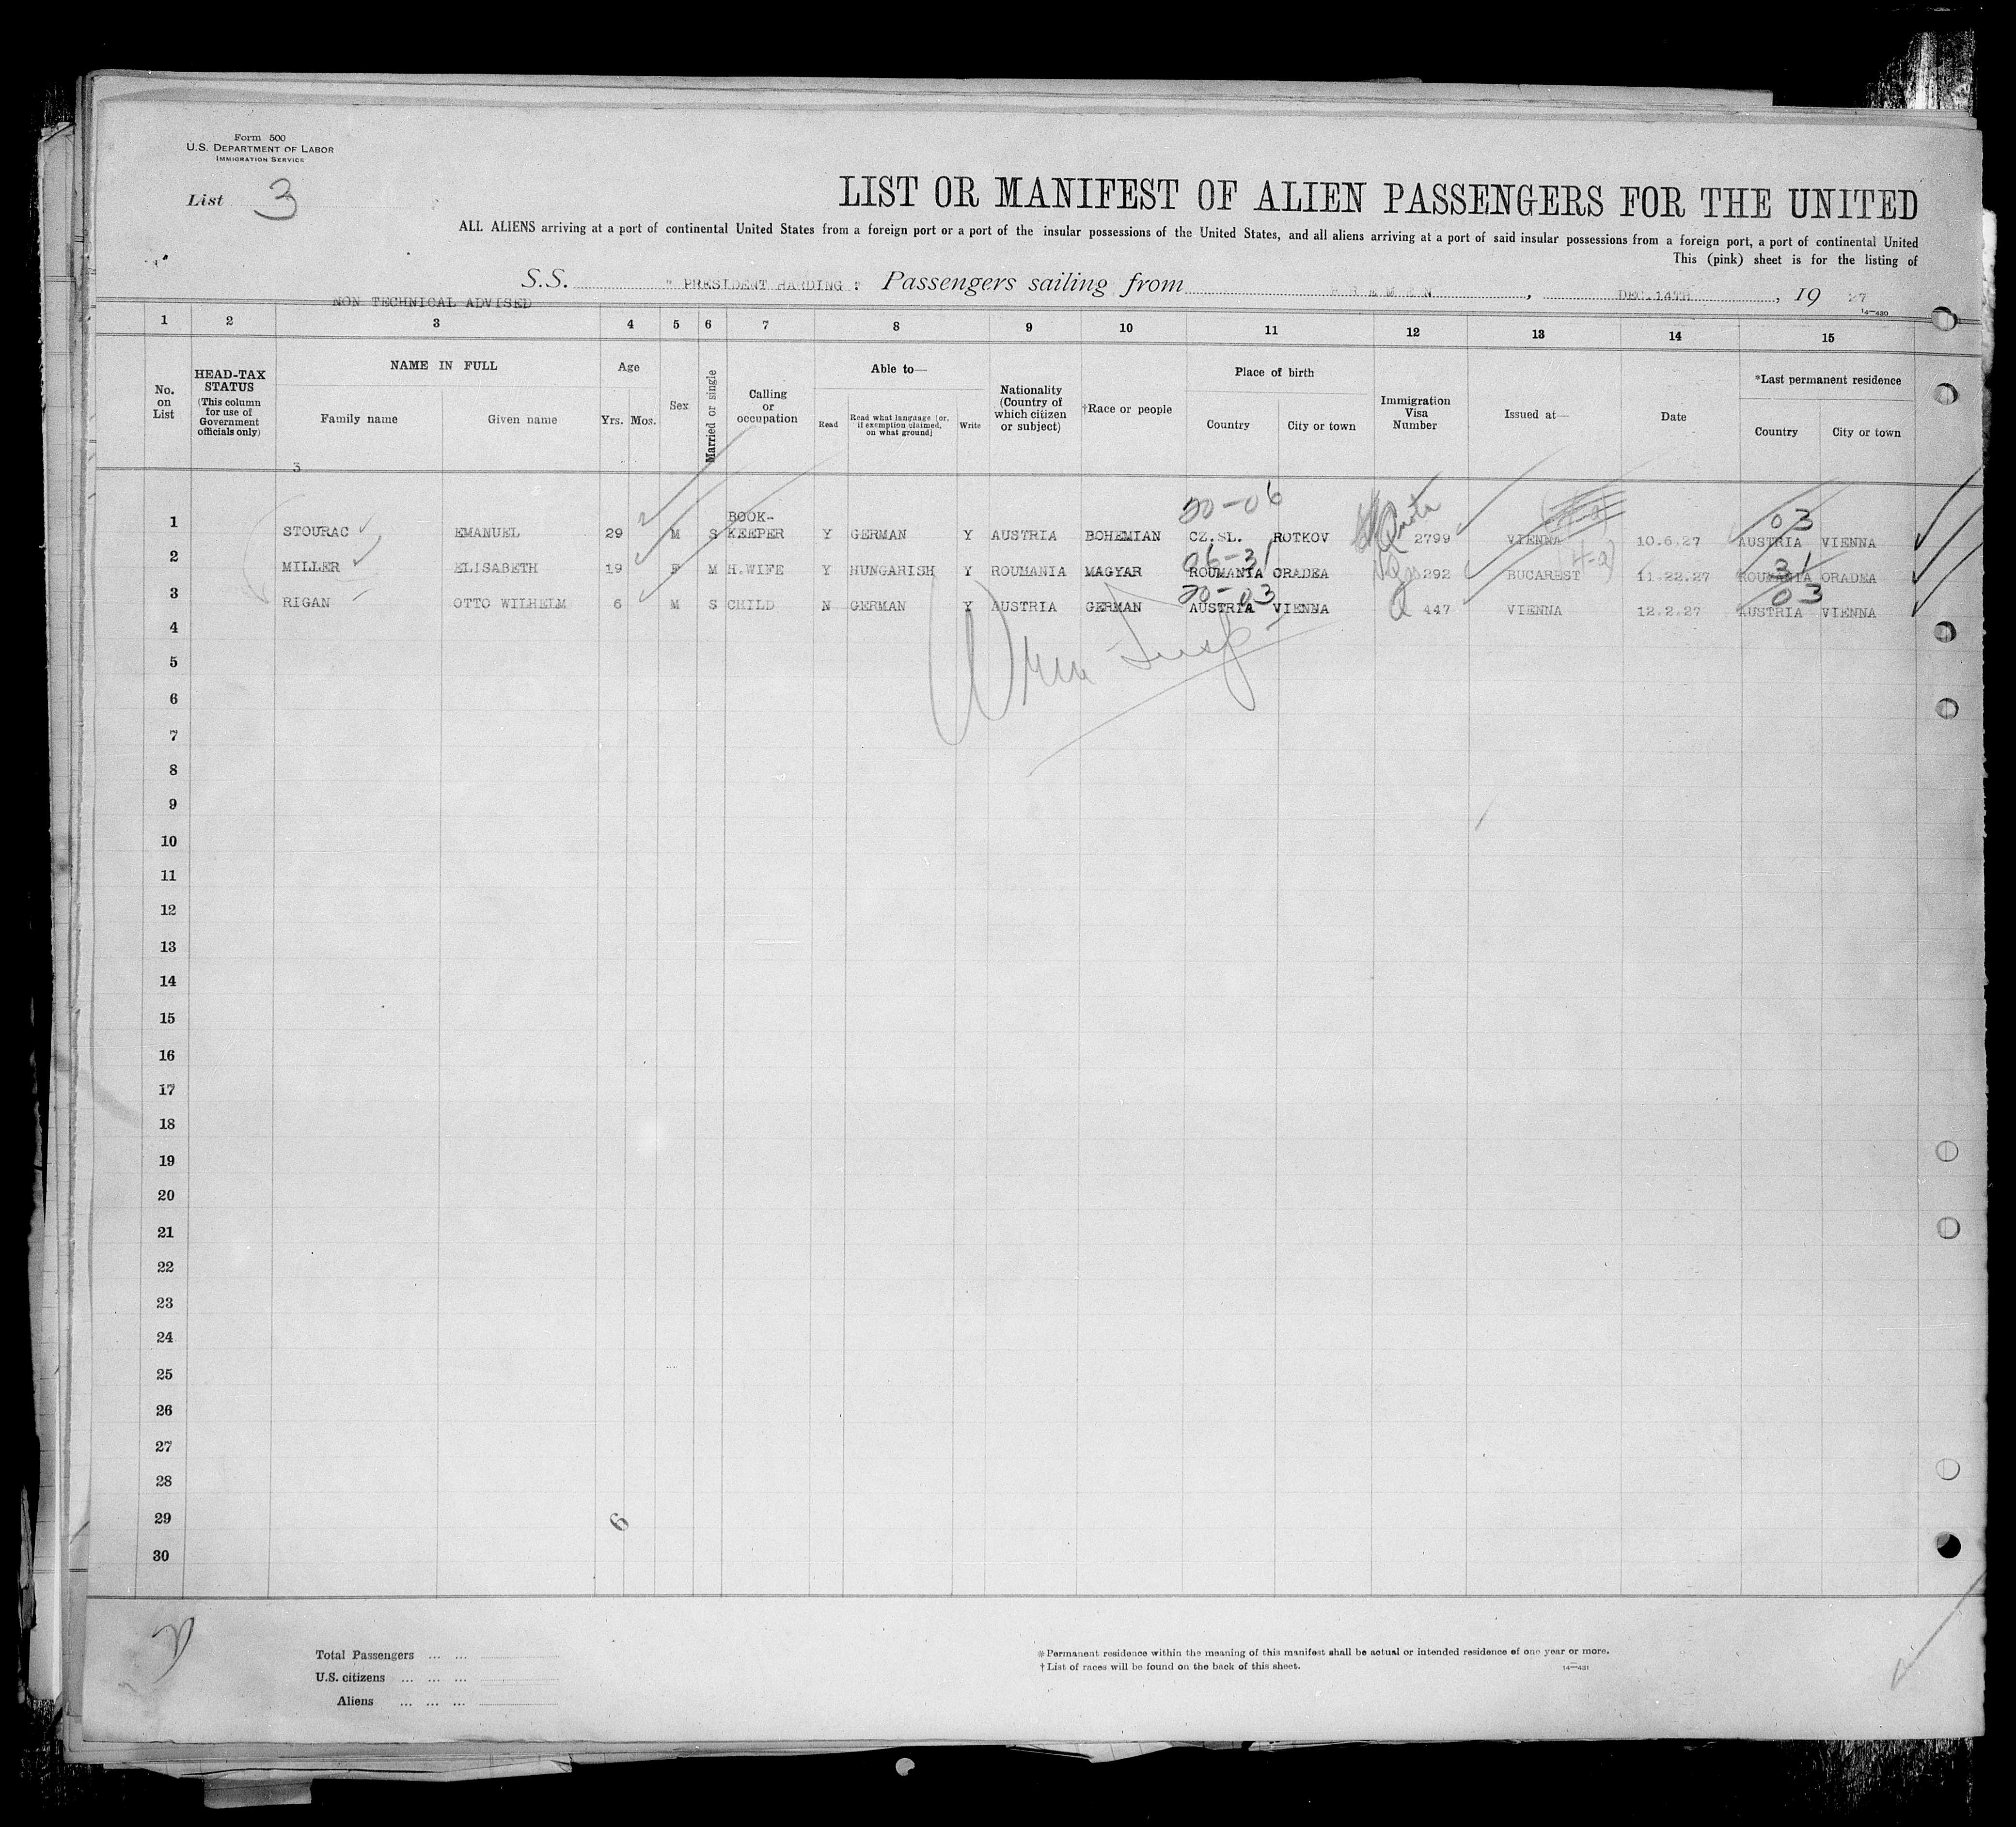 Form 500
U.S. DEPARTMENT OF LABOR
IMMIGRATION SERVICE
List 3
LIST OR MANIFEST OF ALIEN PASSENGERS FOR THE UNITED
ALL ALIENS arriving at a port of continental United States from a foreign port or a port of the insular possessions of the United States, and all aliens arriving at a port of said insular possessions from a foreign port, a port of continental United
This (pink) sheet is for the listing of
S.S. " PRESIDENT HARDING " Passengers sailing from BREMEN, DEC.14TH, 19 27
NON TECHNICAL ADVISED
14—430
1 2 3 4 5 6 7 8 9 10 11 12 13 14 15
No. on List
HEAD-TAX STATUS (This column for use of Government officials only)
NAME IN FULL
Family name Given name
Age
Yrs. Mos.
Sex
Married or single
Calling or occupation
Able to—
Read Read what language [or, if exemption claimed, on what ground] Write
Nationality (Country of which citizen or subject)
†Race or people
Place of birth
Country City or town
Immigration Visa Number
Issued at—
Date
*Last permanent residence
Country City or town
3
20-06 Quota 03
1 STOURAC EMANUEL 29 M S BOOK-KEEPER Y GERMAN Y AUSTRIA BOHEMIAN CZ.SL. ROTKOV 2799 VIENNA 10.6.27 AUSTRIA VIENNA
06-31 4-a 31
2 MILLER ELISABETH 19 F M H.WIFE Y HUNGARISH Y ROUMANIA MAGYAR ROUMANIA ORADEA 292 BUCAREST 11.22.27 ROUMANIA ORADEA
20-03 Q 03
3 RIGAN OTTO WILHELM 6 M S CHILD N GERMAN Y AUSTRIA GERMAN AUSTRIA VIENNA 447 VIENNA 12.2.27 AUSTRIA VIENNA
4
5
6
7
8
9
10
11
12
13
14
15
16
17
18
19
20
21
22
23
24
25
26
27
28
29 6
30
Total Passengers ... ...
U.S. citizens ... ... ...
Aliens ... ... ...
*Permanent residence within the meaning of this manifest shall be actual or intended residence of one year or more.
†List of races will be found on the back of this sheet.
14—431